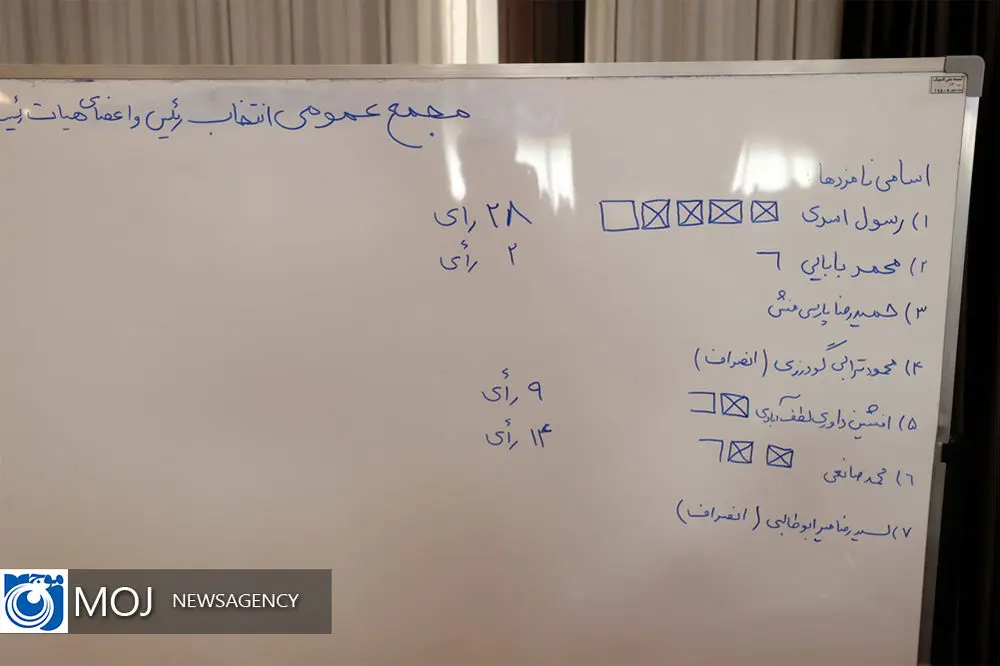 مجمع عمومی انتخاب رئیس و اعضای هیات رئیـ
اسامی نامزدها:
۱) رسول اسدی ۲۸ رأی
۲) محمد بابایی ۲ رأی
۳) حمیدرضا پارسی منش
۴) محمود ترابی گودرزی (انصراف)
۵) افشین داوری لطف آبادی ۹ رأی
۶) محمد صانعی ۱۴ رأی
۷) سیدرضا میرابوطالبی (انصراف)
MOJ NEWSAGENCY